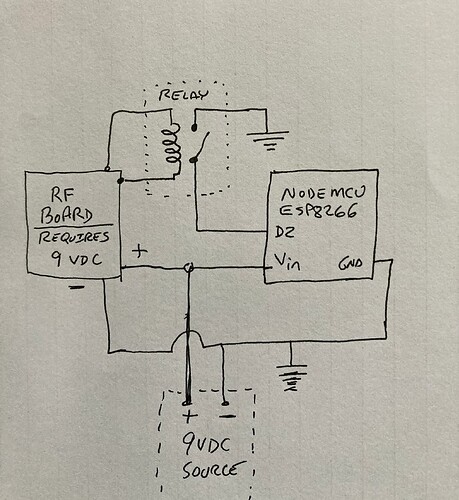 RELAY
RF
BOARD
REQUIRES
9 VDC
+
−
NODEMCU
ESP8266
D2
Vin
GND
+ −
9VDC
SOURCE